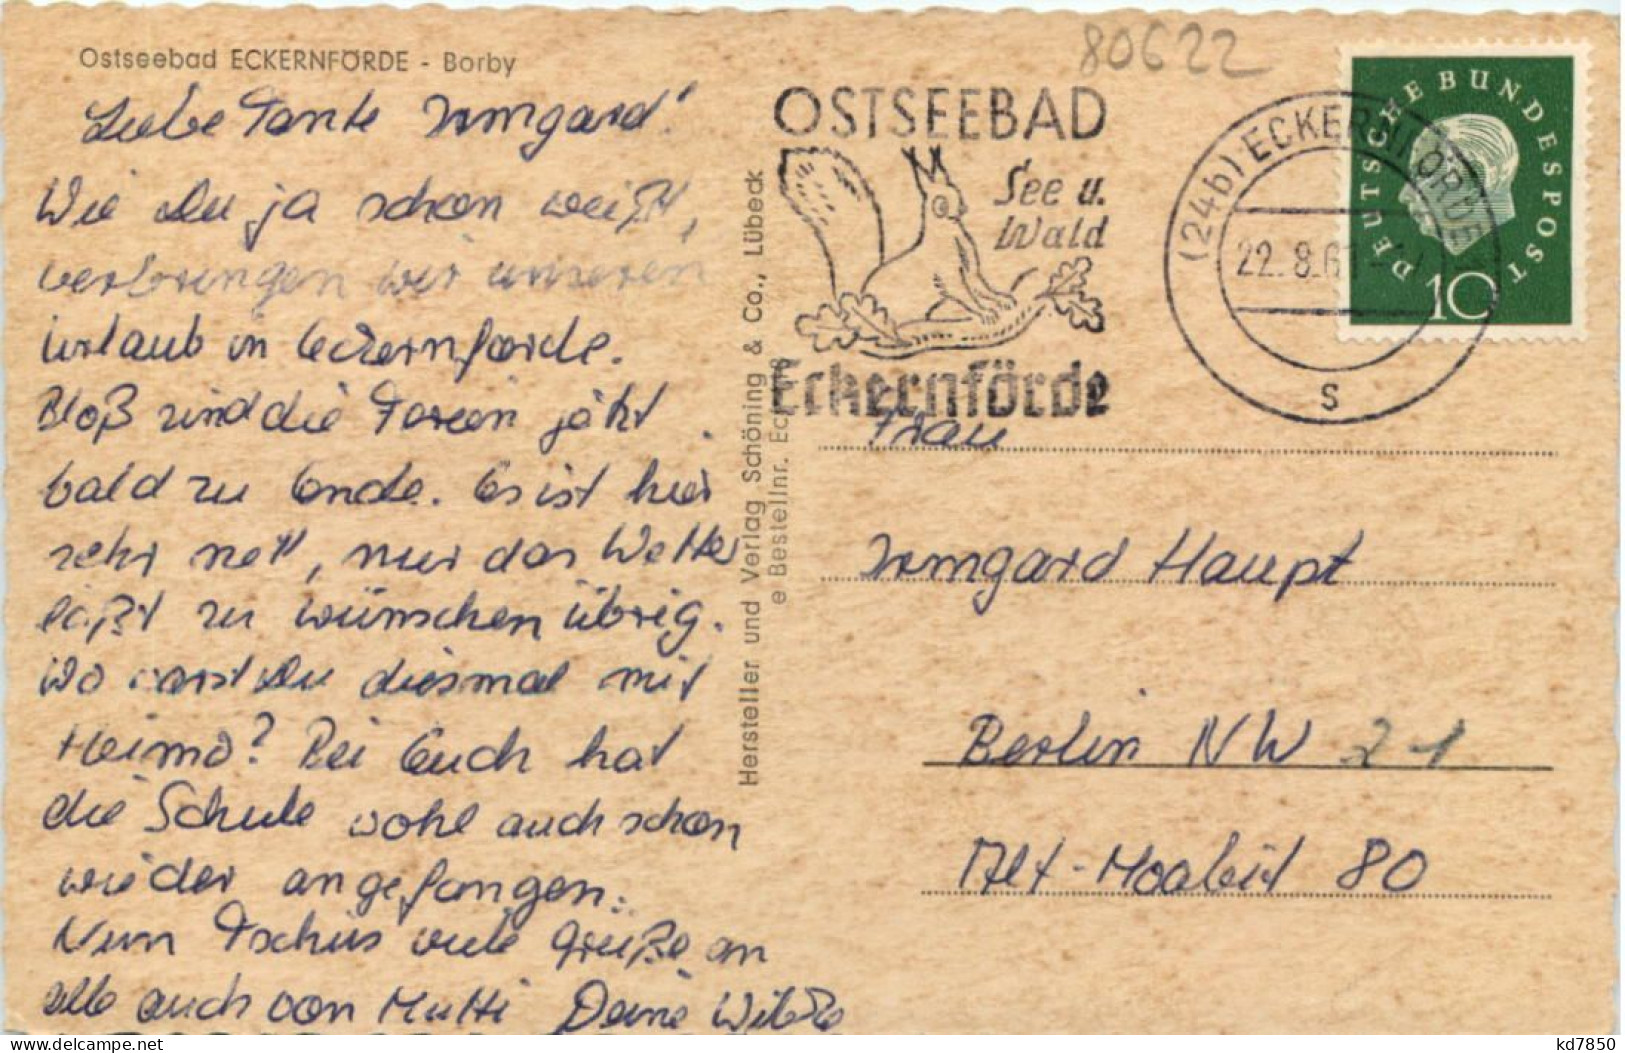 Ostseebad ECKERNFÖRDE - Borby
Liebe Tante Irmgard!
Wie Du ja schon weißt,
verbringen wir unseren
Urlaub in Eckernförde.
Bloß sind die Ferien jetzt
bald zu Ende. Es ist hier
sehr nett, nur das Wetter
läßt zu wünschen übrig.
Wo warst Du diesmal mit
Heimo? Bei Euch hat
die Schule wohl auch schon
wieder angefangen.
Nun Tschüs viele Grüße an
alle auch von Mutti Deine
Hersteller und Verlag Schöning & Co., Lübeck
e Bestellnr. Eck
80622
OSTSEEBAD
See u.
Wald
Eckernförde
(24b) ECKERNFÖRDE
22.8.61
s
DEUTSCHE BUNDESPOST
10
Frau
Irmgard Haupt
Berlin NW 21
Alt-Moabit 80
www.delcampe.net
kd7850